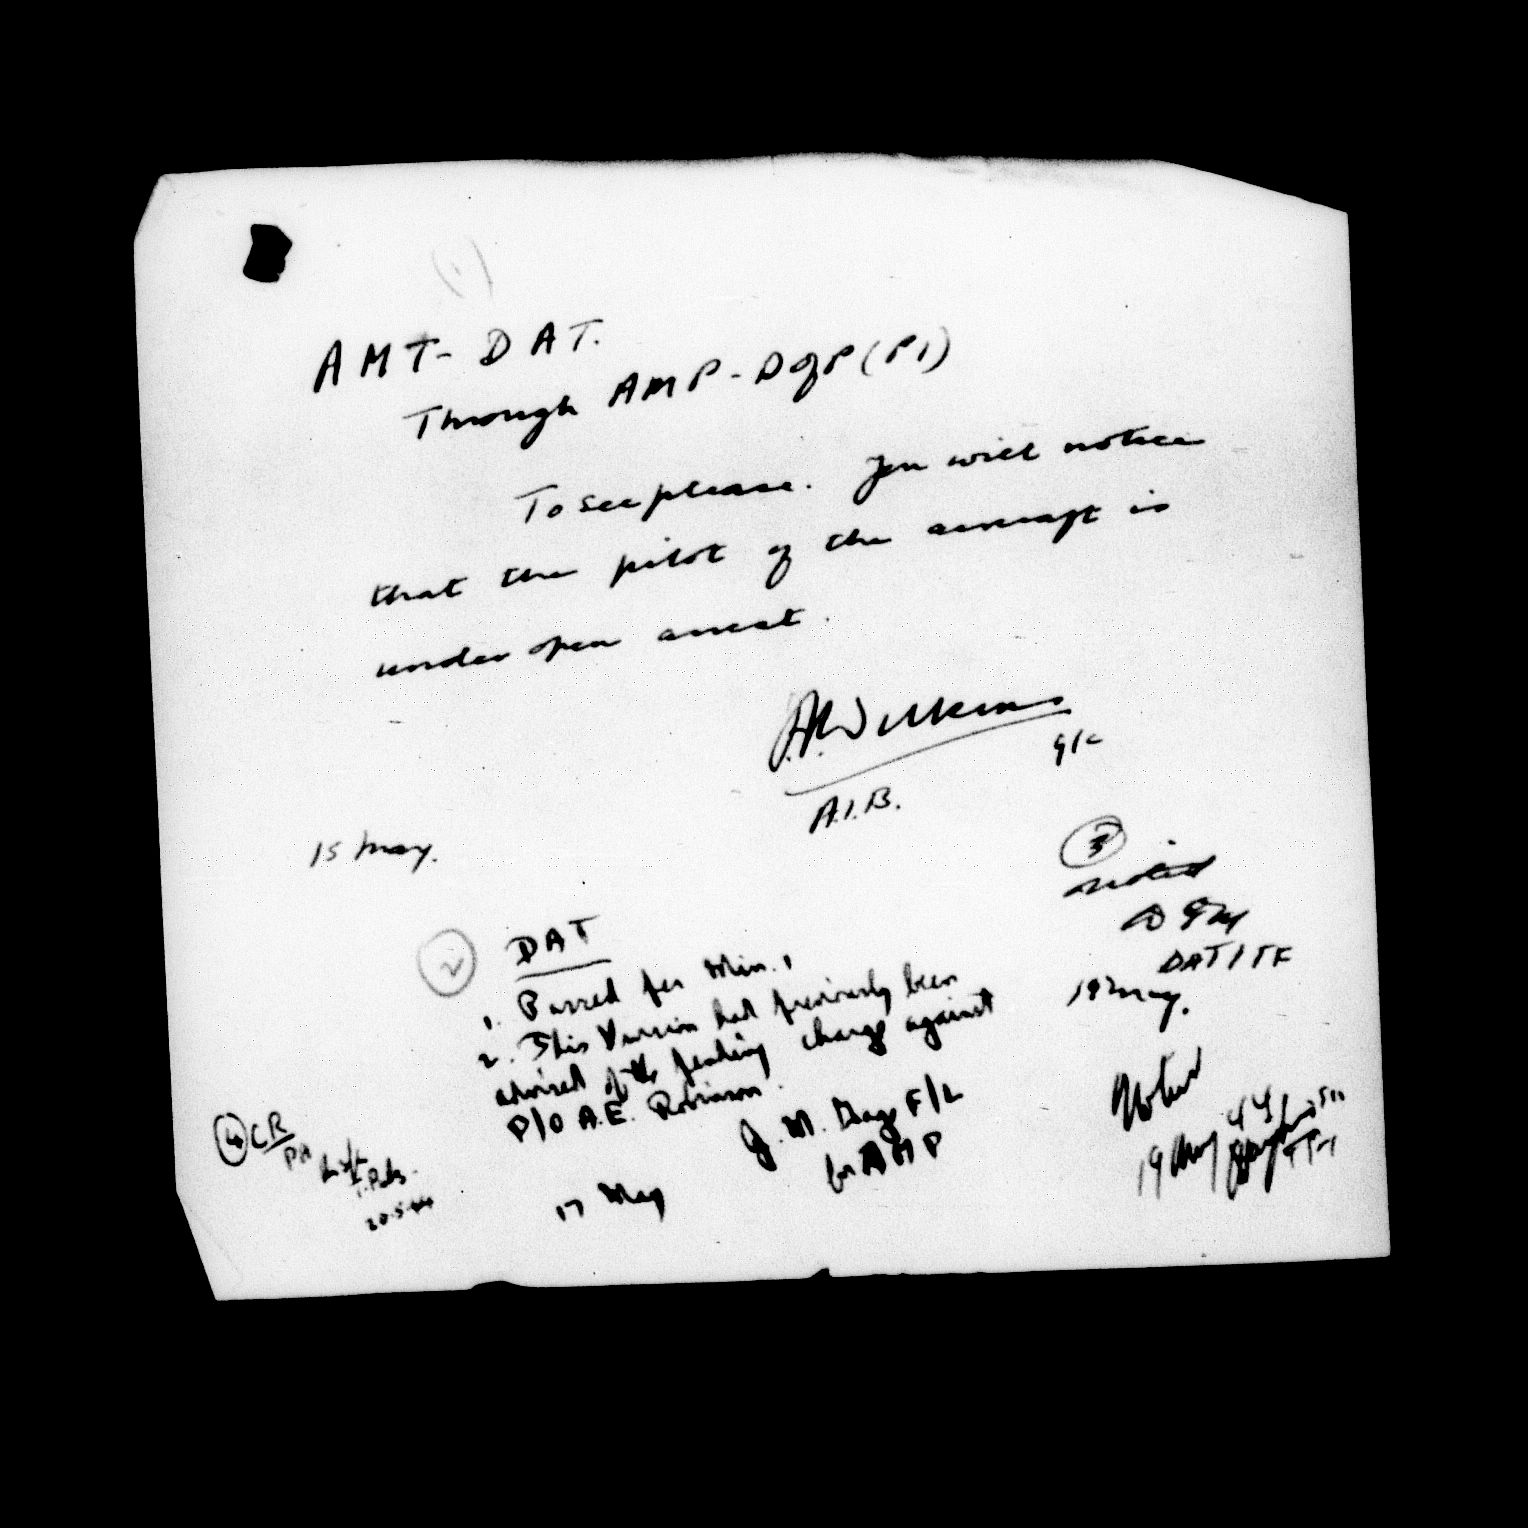 AMT - DAT.
Through AMP - DofP (P1)
To see please. You will notice
that the pilot of the aircraft is
under open arrest.
Wilkins
G/C
A.I.B.
15 May.
(2) DAT
1. Passed per Min. 1
2. This Division had previously been
advised of the pending charge against
P/O A.E. Robinson.
J. M. F/L
for AMP
17 May
(3)
Noted
DAT/TF
19 May.
Noted
19 May
(4) CR
PA
20.5.44